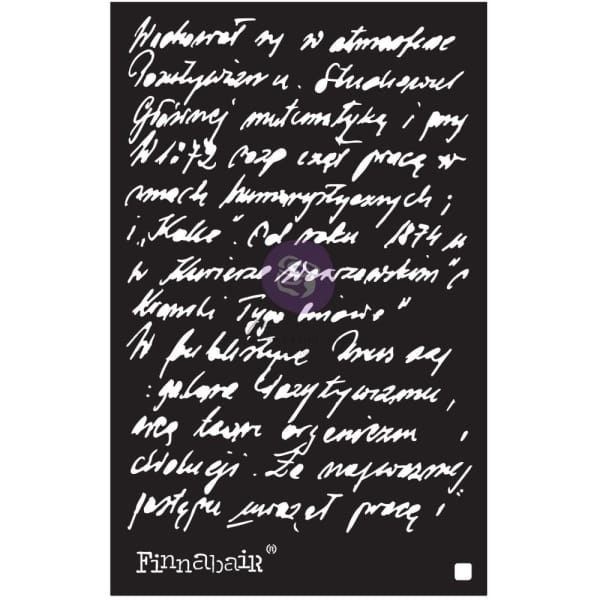 Wychował się w atmosferze
Pozytywizmu. Studiował
Głównej matematykę i przy
W 1872 rozpoczął pracę w
smach humorystycznych;
i „Kolce". Od roku 1874 u
w Kurierze Warszawskim" c
Kroniki Tygodniowe"
W publistyce Prus
Pozytywizmu,
organizm i
ewolucji. Za najważniej
postępu uważał pracę i"
Finnabair (R)